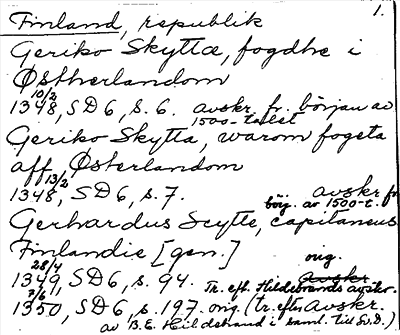 Finland, republik 1.
Geriko Skytta, fogdhe i
Østherlandom
10/2
1348, SD 6, s. 6. avskr. fr. början av
1500-talet
Geriko Skytta, warom fogeta
aff Østerlandom
13/2
1348, SD 6, s. 7. avskr fr
börj. av 1500-t.
Gerhardus Scytte, capitaneus
Finlandie [gen.] orig.
28/4 Avskr
1349, SD 6, s. 94. Tr. eft. Hildebrands avskr.
7/6
1350, SD 6, s. 197. orig (tr. efter Avskr.
av B. E. Hildebrand i saml. till Sv.D.)